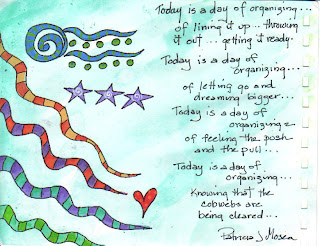 Today is a day of organizing...
of lining it up... throwing
it out... getting it ready.
Today is a day of
organizing...
of letting go and
dreaming bigger...
Today is a day of
organizing...
of feeling the push
and the pull...
Today is a day of
organizing...
Knowing that the
cobwebs are
being cleared...
Patricia J Mosca